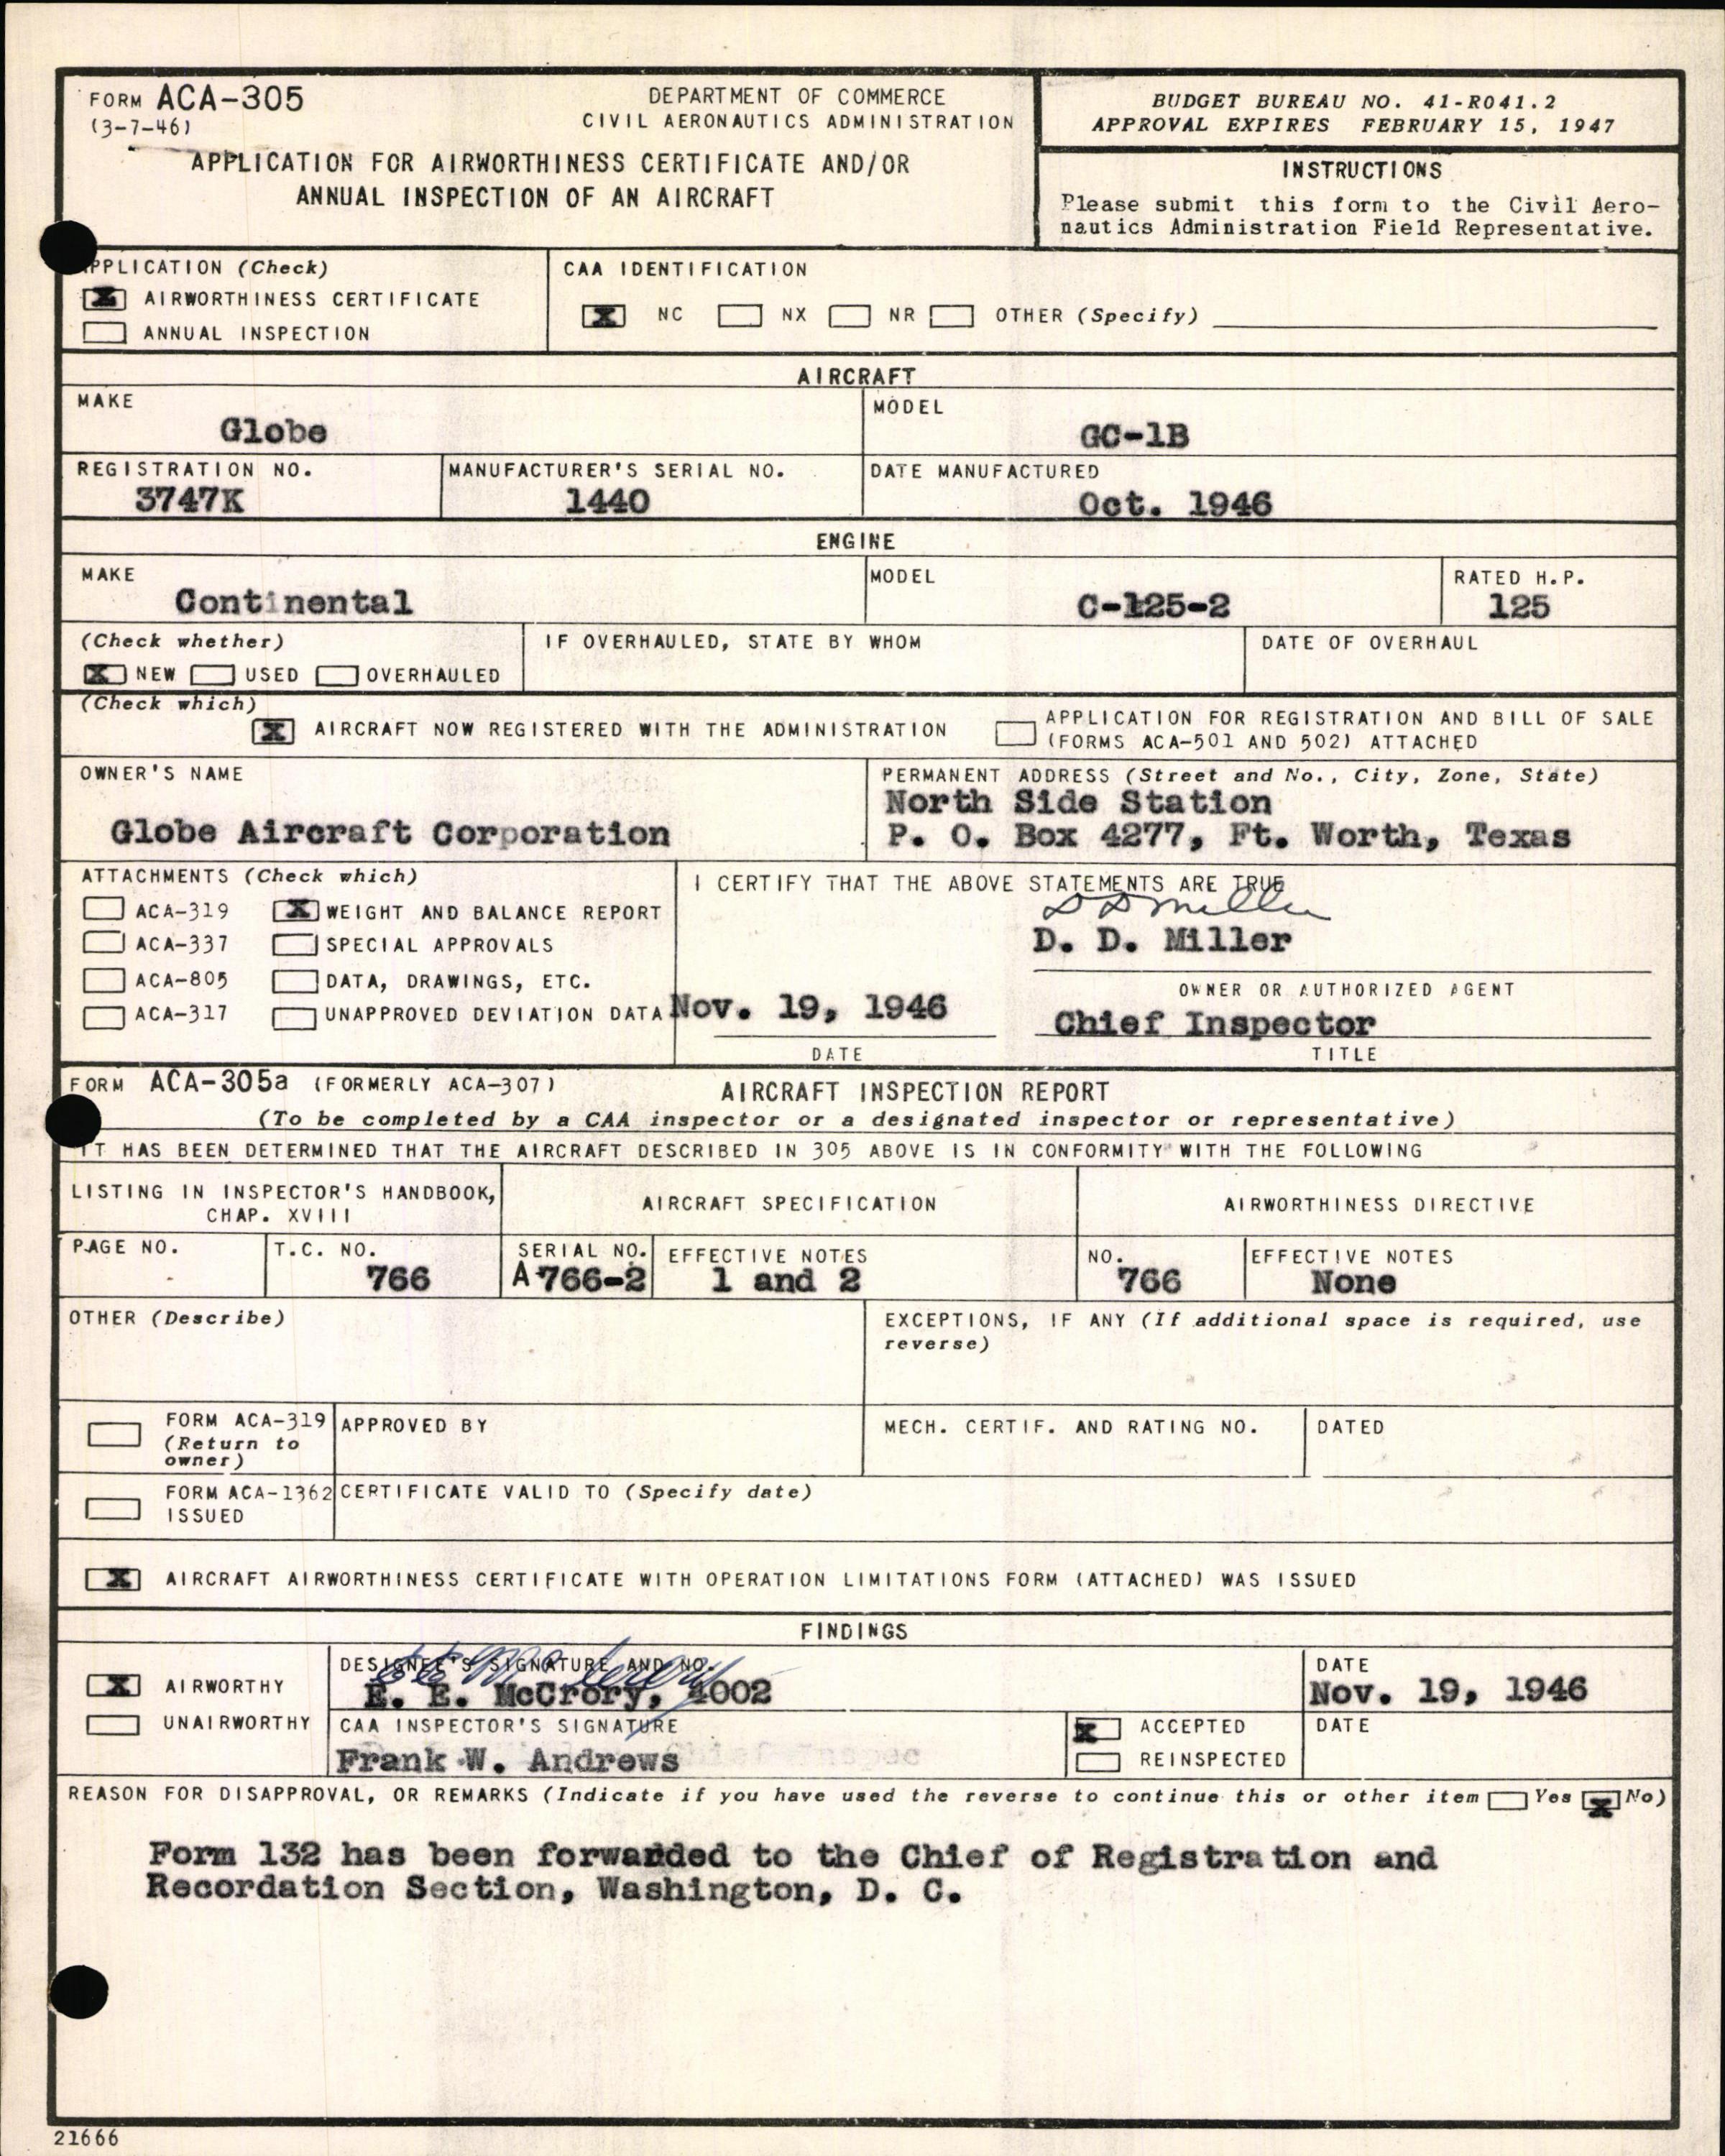 FORM ACA-305
(3-7-46)
DEPARTMENT OF COMMERCE
CIVIL AERONAUTICS ADMINISTRATION
APPLICATION FOR AIRWORTHINESS CERTIFICATE AND/OR
ANNUAL INSPECTION OF AN AIRCRAFT
BUDGET BUREAU NO. 41-R041.2
APPROVAL EXPIRES FEBRUARY 15, 1947
INSTRUCTIONS
Please submit this form to the Civil Aero-
nautics Administration Field Representative.
APPLICATION (Check)
X AIRWORTHINESS CERTIFICATE
ANNUAL INSPECTION
CAA IDENTIFICATION
X NC NX NR OTHER (Specify)
AIRCRAFT
MAKE
Globe
MODEL
GC-1B
REGISTRATION NO.
3747K
MANUFACTURER'S SERIAL NO.
1440
DATE MANUFACTURED
Oct. 1946
ENGINE
MAKE
Continental
MODEL
C-125-2
RATED H.P.
125
(Check whether)
X NEW USED OVERHAULED
IF OVERHAULED, STATE BY WHOM
DATE OF OVERHAUL
(Check which)
X AIRCRAFT NOW REGISTERED WITH THE ADMINISTRATION
APPLICATION FOR REGISTRATION AND BILL OF SALE
(FORMS ACA-501 AND 502) ATTACHED
OWNER'S NAME
Globe Aircraft Corporation
PERMANENT ADDRESS (Street and No., City, Zone, State)
North Side Station
P. O. Box 4277, Ft. Worth, Texas
ATTACHMENTS (Check which)
ACA-319 X WEIGHT AND BALANCE REPORT
ACA-337 SPECIAL APPROVALS
ACA-805 DATA, DRAWINGS, ETC.
ACA-317 UNAPPROVED DEVIATION DATA
I CERTIFY THAT THE ABOVE STATEMENTS ARE TRUE
D D Miller
D. D. Miller
OWNER OR AUTHORIZED AGENT
Nov. 19, 1946
DATE
Chief Inspector
TITLE
FORM ACA-305a (FORMERLY ACA-307)
AIRCRAFT INSPECTION REPORT
(To be completed by a CAA inspector or a designated inspector or representative)
IT HAS BEEN DETERMINED THAT THE AIRCRAFT DESCRIBED IN 305 ABOVE IS IN CONFORMITY WITH THE FOLLOWING
LISTING IN INSPECTOR'S HANDBOOK,
CHAP. XVIII
AIRCRAFT SPECIFICATION
AIRWORTHINESS DIRECTIVE
PAGE NO.
T.C. NO.
766
SERIAL NO.
A 766-2
EFFECTIVE NOTES
1 and 2
NO.
766
EFFECTIVE NOTES
None
OTHER (Describe)
EXCEPTIONS, IF ANY (If additional space is required, use
reverse)
FORM ACA-319
(Return to
owner)
APPROVED BY
MECH. CERTIF. AND RATING NO.
DATED
FORM ACA-1362
ISSUED
CERTIFICATE VALID TO (Specify date)
X AIRCRAFT AIRWORTHINESS CERTIFICATE WITH OPERATION LIMITATIONS FORM (ATTACHED) WAS ISSUED
FINDINGS
X AIRWORTHY
UNAIRWORTHY
DESIGNEE'S SIGNATURE AND NO.
E E McCrory
E. E. McCrory, 4002
DATE
Nov. 19, 1946
CAA INSPECTOR'S SIGNATURE
Frank W. Andrews
X ACCEPTED
REINSPECTED
DATE
REASON FOR DISAPPROVAL, OR REMARKS (Indicate if you have used the reverse to continue this or other item Yes X No)
Form 132 has been forwarded to the Chief of Registration and
Recordation Section, Washington, D. C.
21666